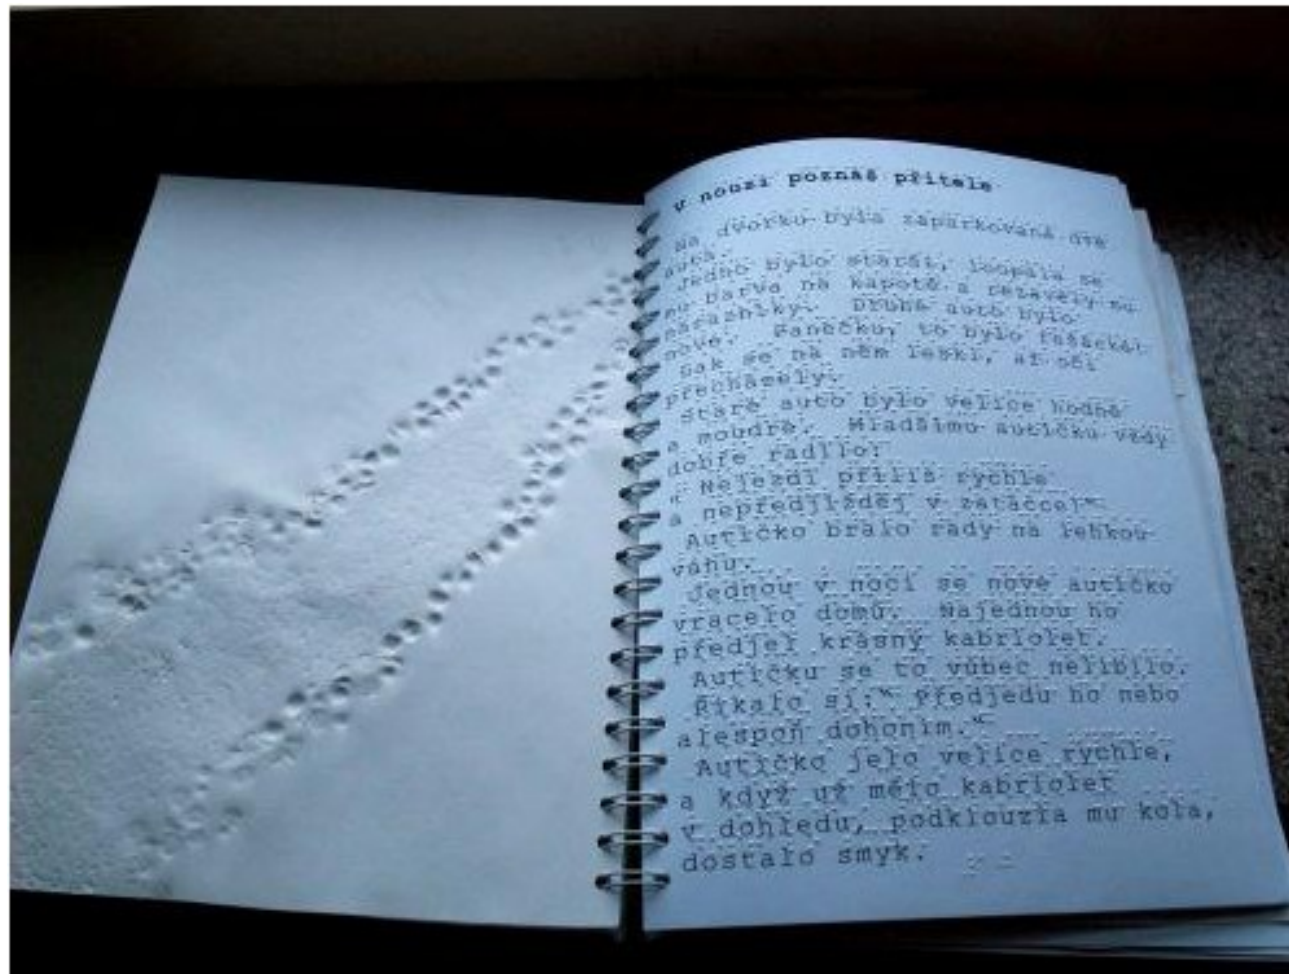 v nouzi poznáš přítele
Na dvorku byla zaparkovaná dvě
auta.
Jedno bylo starší, loupala se
mu barva na kapotě a rezavěly mu
nárazníky. Druhé auto bylo
nové. Panečku, to bylo fešácké!
Lak se na něm leskl, až oči
přecházely.
Staré auto bylo velice hodné
a moudré. Mladšímu autíčku vždy
dobře radilo:
" Nejezdi příliš rychle
a nepředjížděj v zatáčce!"
Autíčko bralo rady na lehkou
váhu.
Jednou v noci se nové autíčko
vracelo domů. Najednou ho
předjel krásný kabriolet.
Autíčku se to vůbec nelíbilo.
Říkalo si:" Předjedu ho nebo
alespoň dohoním."
Autíčko jelo velice rychle,
a když už mělo kabriolet
v dohledu, podklouzla mu kola,
dostalo smyk.